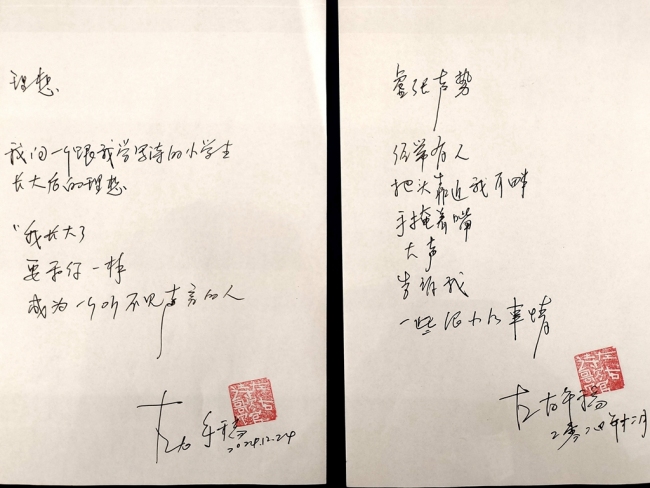 理想
我问一个跟我学写诗的小学生
长大后的理想
“我长大了
要和你一样
成为一个听不见声音的人
左右 手稿
2024.12.24
虚张声势
经常有人
把头靠近我耳畔
手掩着嘴
大声
告诉我
一些很小的事情
左右 手稿
二零二四年十二月